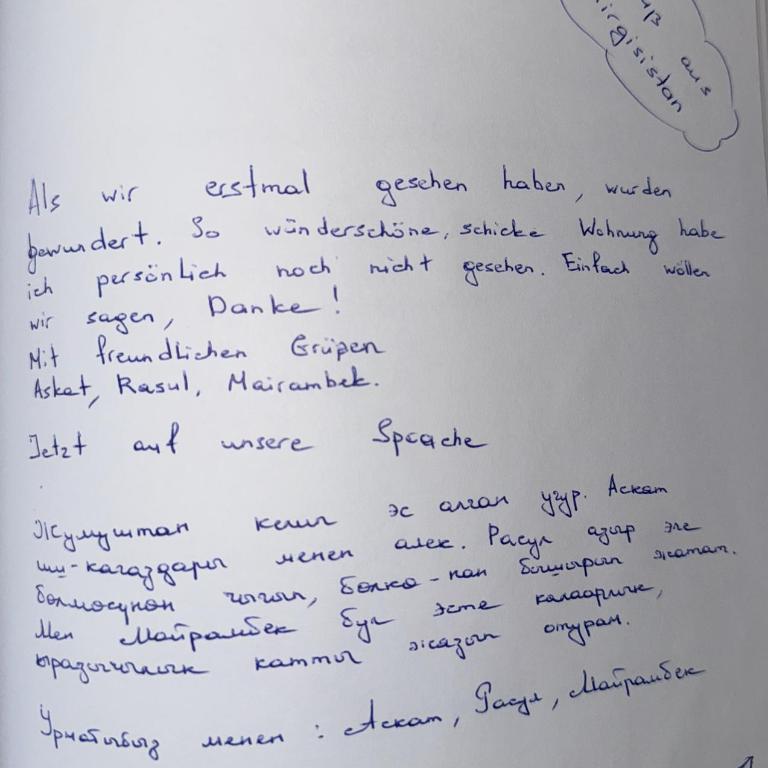 aus
Als wir erstmal gesehen haben, wurden
bewundert. So wünderschöne, schicke Wohnung habe
ich persönlich noch nicht gesehen. Einfach wöllen
wir sagen, Danke!
Mit freundlichen Grüßen
Askat, Rasul, Mairambek.
Jetzt auf unsere Sprache
Жумуштан келип эс алган учур. Аскат
иш-кагаздары менен алек. Расул азыр эле
бөлмөсүнөн чыгып, бөлкө-нан бышырып жатат.
Мен Майрамбек бул эсте калаарлык,
ыраазычылык катты жазып отурам.
Урматыбыз менен: Аскат, Расул, Майрамбек